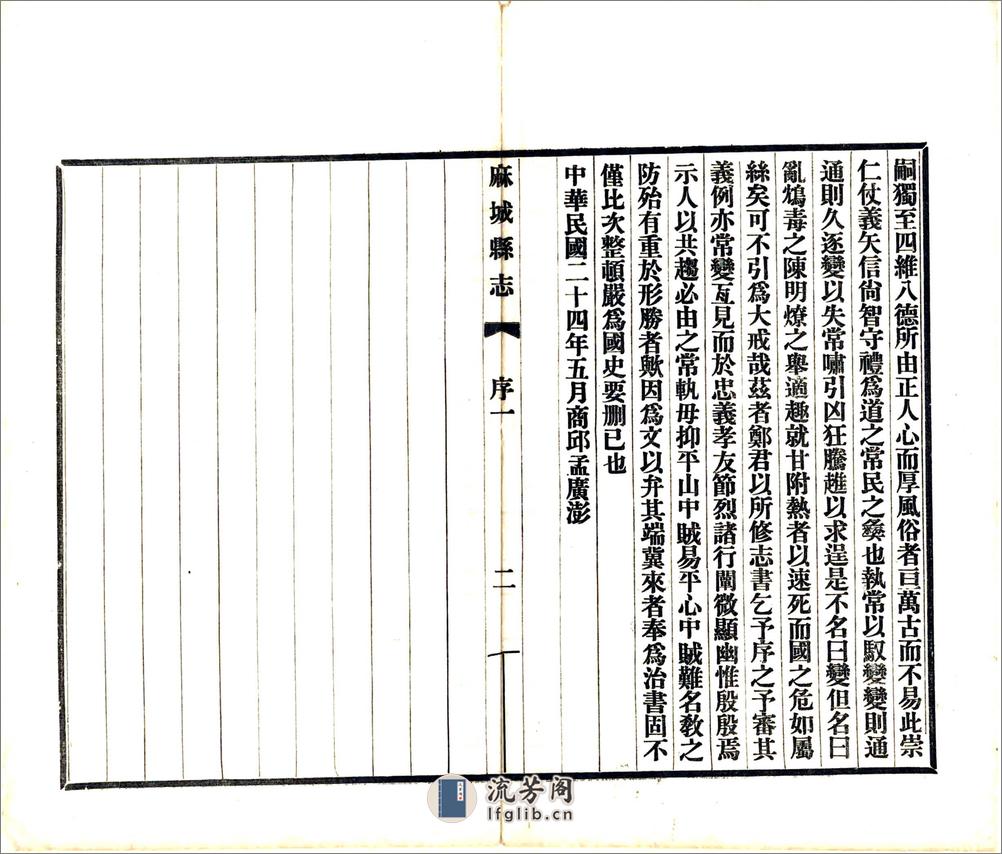 嗣獨至四維八德所由正人心而厚風俗者亘萬古而不易此崇
仁仗義矢信尙智守禮爲道之常民之彝也執常以馭變變則通
通則久逐變以失常嘯引凶狂騰趡以求逞是不名曰變但名曰
亂鴆毒之陳明燎之舉適趣就甘附熱者以速死而國之危如屬
絲矣可不引爲大戒哉茲者鄭君以所修志書乞予序之予審其
義例亦常變亙見而於忠義孝友節烈諸行闡微顯幽惟殷殷焉
示人以共趨必由之常軌毋抑平山中賊易平心中賊難名敎之
防殆有重於形勝者歟因爲文以弁其端冀來者奉爲治書固不
僅比次整頓嚴爲國史要刪已也
中華民國二十四年五月商邱孟廣澎
麻城縣志 序一 二
流芳阁
lfglib.cn